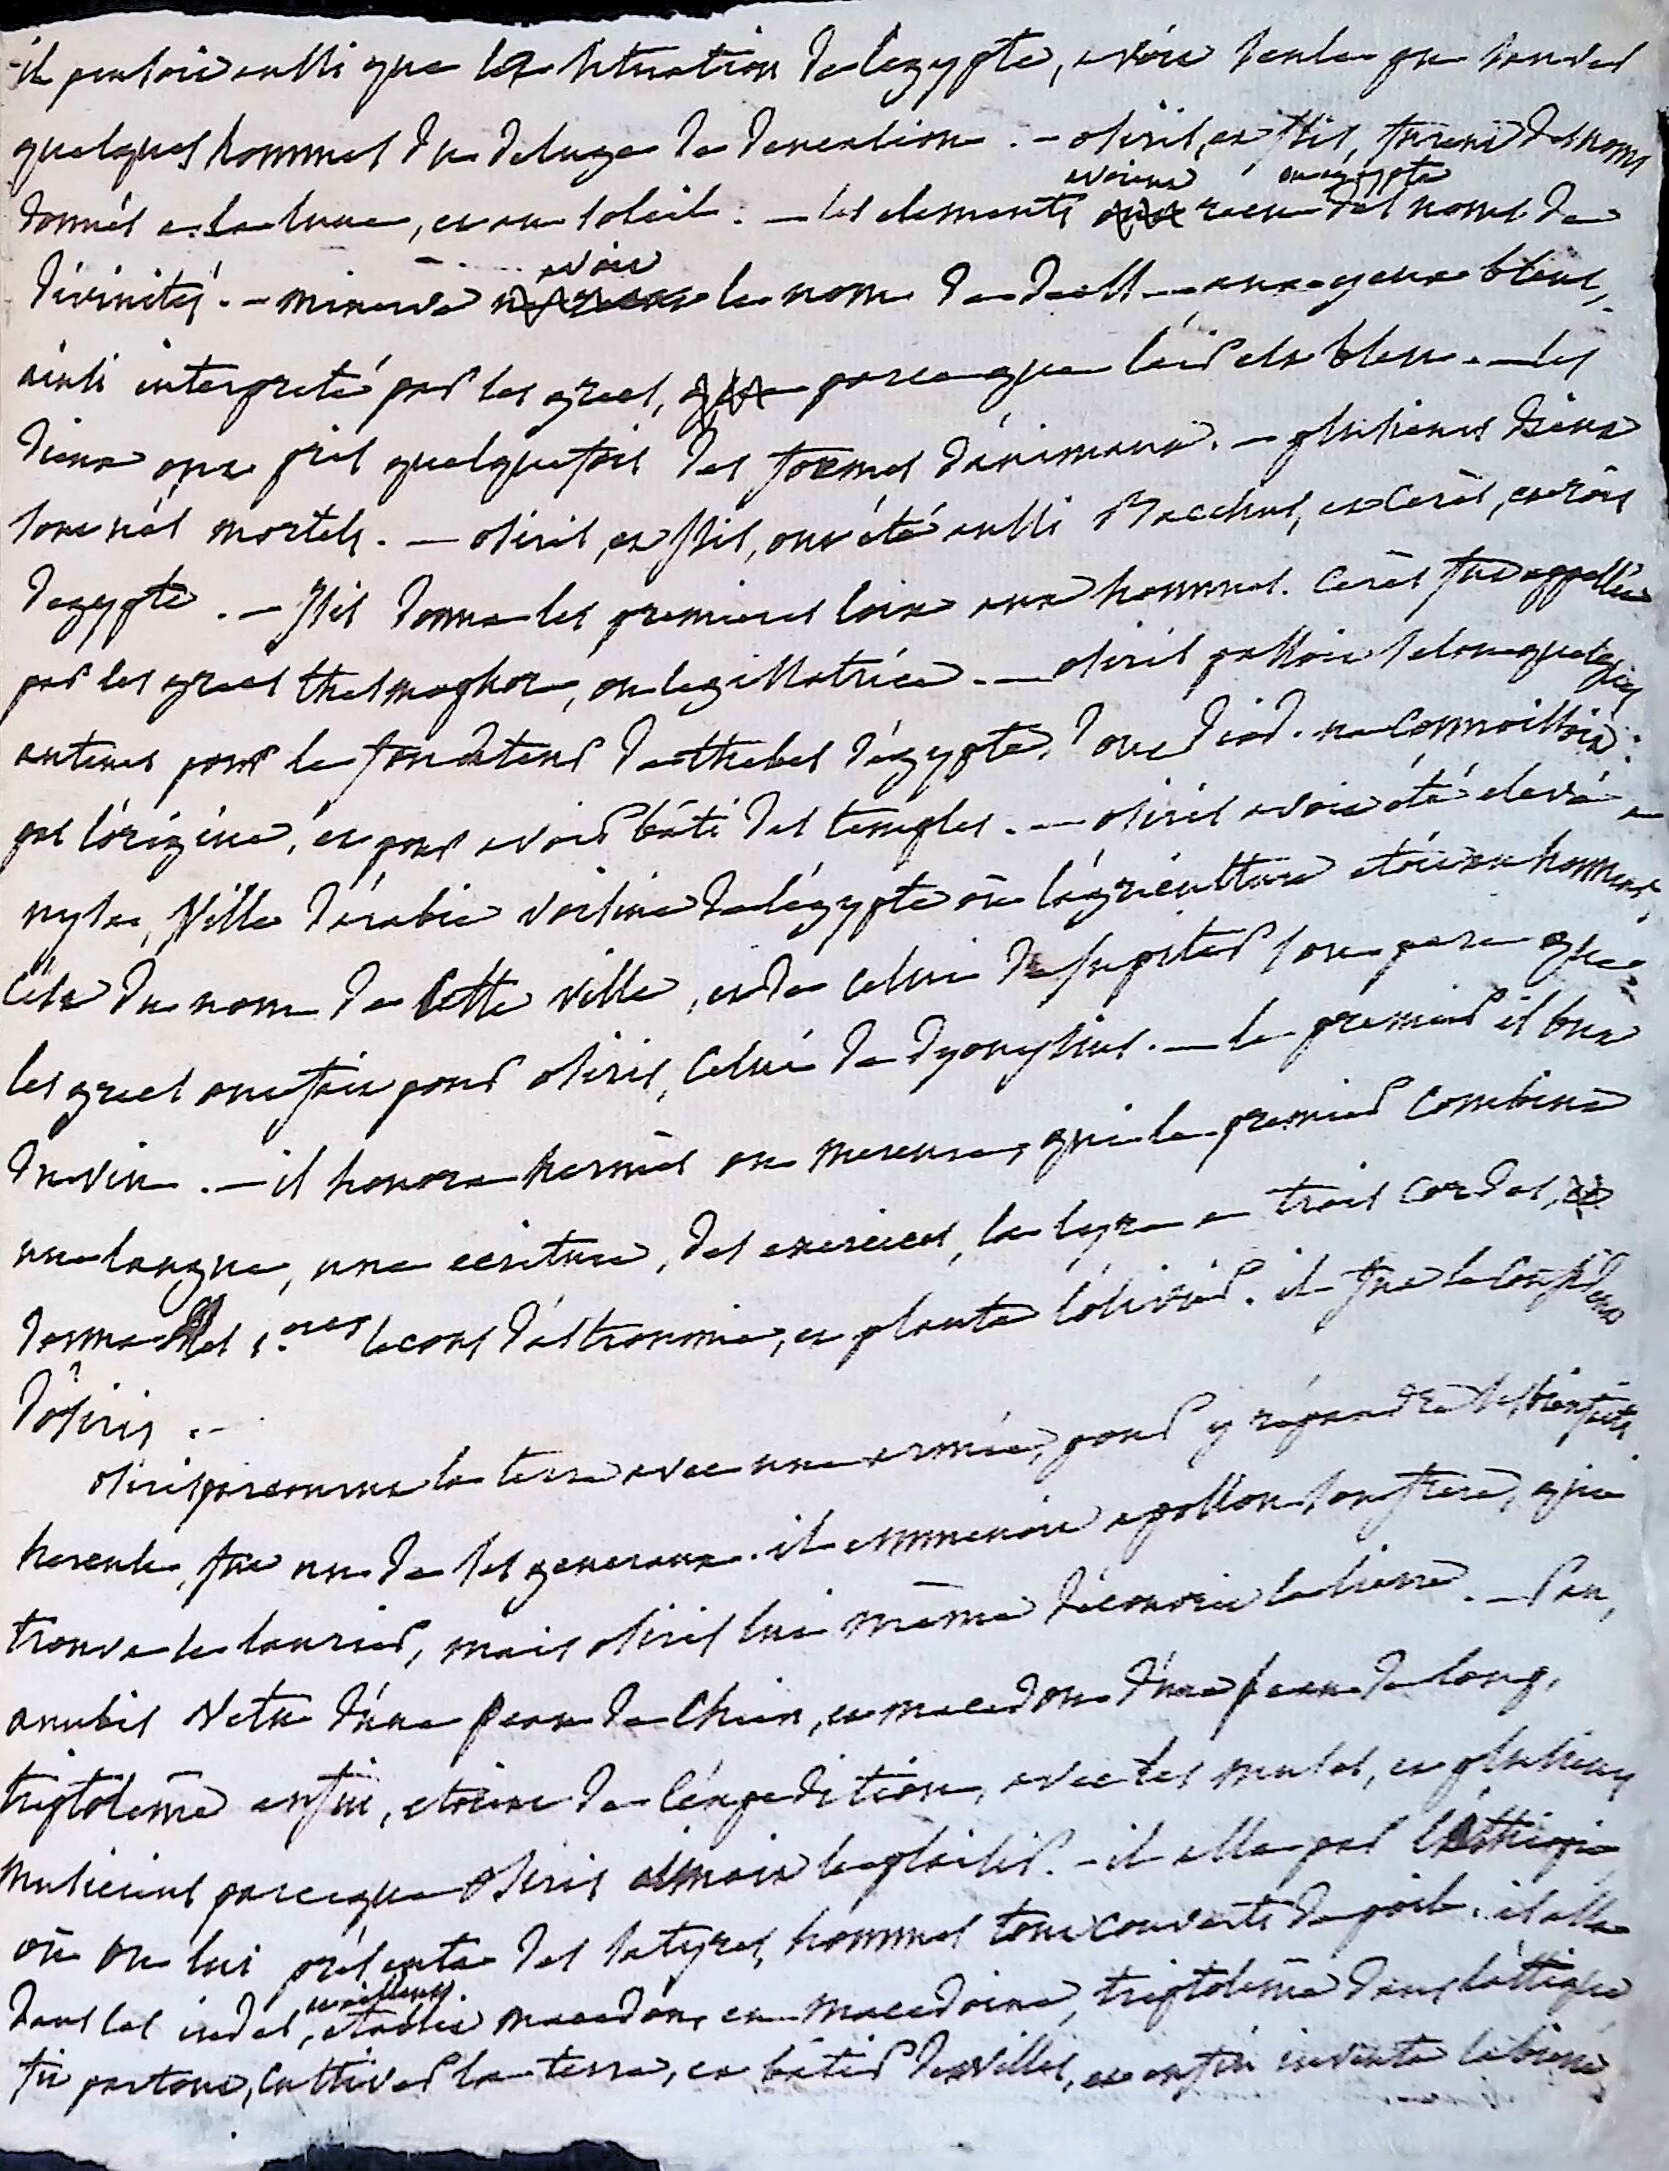 il pensoit aussi que la situation de legypte, avoit seule pu sauver
quelques hommes du deluge de deucalion. - osiris, et isis, furent des noms
donnés a la lune, et au soleil. - les elements avoient recu en egypte des noms de
divinités. - minerve avoit le nom de déesse aux yeux bleus,
ainsi interpreté par les grecs, parceque l'air est bleu. - les
dieux ont pris quelquefois des formes d'animaux. - plusieurs dieux
sont nés mortels. - osiris, et isis, ont été aussi Bacchus, et Cerès, et rois
d'egypte. - Isis donna les premieres loix aux hommes. Cerès fut appellée
par les grecs thesmophore, ou legislatrice. - osiris passoit selon quelques
auteurs pour le fondateur de thebes d'égypte, dont diod. ne connoissoit
pas l'origine, et pour avoir bâti des temples. - osiris avoit été elevé a
nysa, Ville d'arabie voisine de l'égypte où l'agriculture etoit en honneur,
c'est du nom de cette ville, et de celui de jupiter son pere que
les grecs ont fait pour osiris, celui de dyonysius. - le premier il but
du vin. - il honora hermès ou mercure, qui le premier combina
une langue, une ecriture, des exercices, la lyre a trois cordes,
donna les 1.eres lecons d'astronomie, et planta l'olivier. il fut le confident
d'osiris. -
osiris parcourut la terre avec une armée, pour y répandre ses bienfaits.
hercule, fut un de ses generaux. il emmenoit apollon son frere, qui
trouva le laurier, mais osiris lui même découvrit le lierre. - Pan,
anubis vetu d'une peau de chien, et macedon d'une peau de loup,
triptolême enfin, etoient de l'expedition, avec les muses, et plusieurs
musiciens parceque osiris aimoit le plaisir. - il alla par l'ethiopie
où on lui présenta des satyres, hommes tout couverts de poil. il alla
dans les indes, et ailleurs. etablit macedon, en macedoine, triptolême dans l'attique
fit partout, cultiver la terre, et bâtir des villes, et enfin inventa la biere